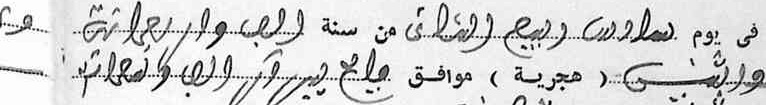 فى يوم سادس ربيع الثانى من سنة الف واربعمائة
واثنين ( هجرية ) موافق فاتح فبراير الف وتسعمائة